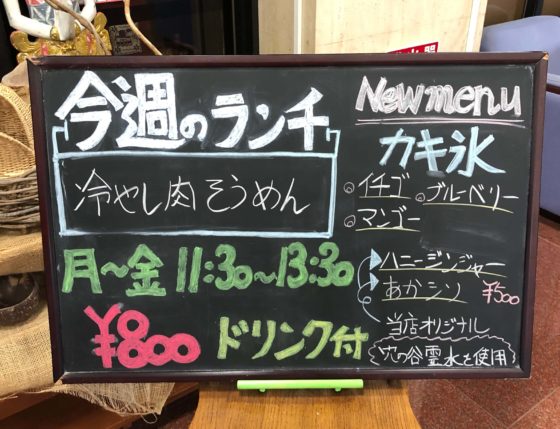 今週のランチ
冷やし肉そうめん
月〜金 11:30〜13:30
¥800 ドリンク付
New menu
カキ氷
イチゴ ブルーベリー
マンゴー
ハニージンジャー
あかシソ ¥500
当店オリジナル
穴の谷霊水を使用